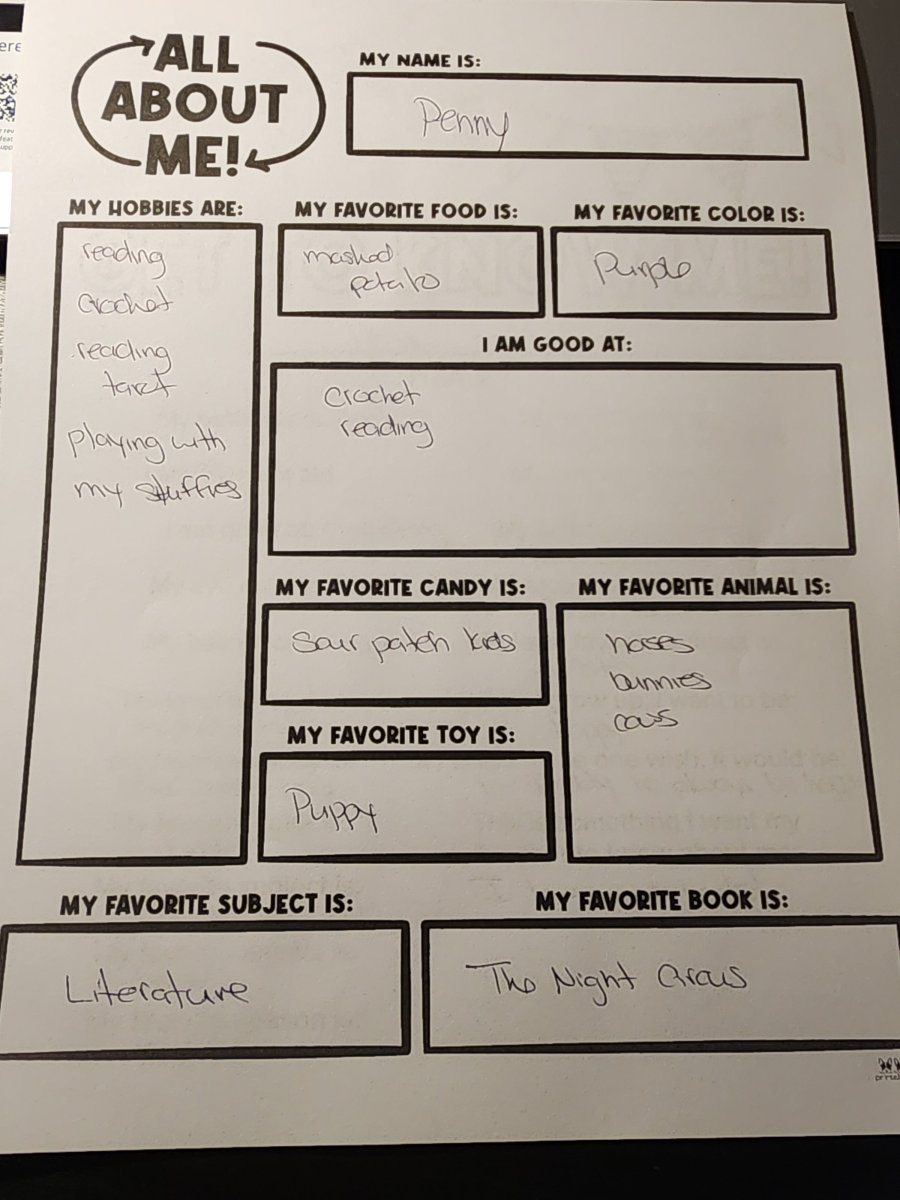 ALL
ABOUT
ME!
MY NAME IS:
Penny
MY HOBBIES ARE:
reading
Crochet
reading
tarot
playing with
my stuffies
MY FAVORITE FOOD IS:
mashed
potato
MY FAVORITE COLOR IS:
Purple
I AM GOOD AT:
Crochet
reading
MY FAVORITE CANDY IS:
Sour patch kids
MY FAVORITE ANIMAL IS:
horses
bunnies
cows
MY FAVORITE TOY IS:
Puppy
MY FAVORITE SUBJECT IS:
Literature
MY FAVORITE BOOK IS:
The Night Circus